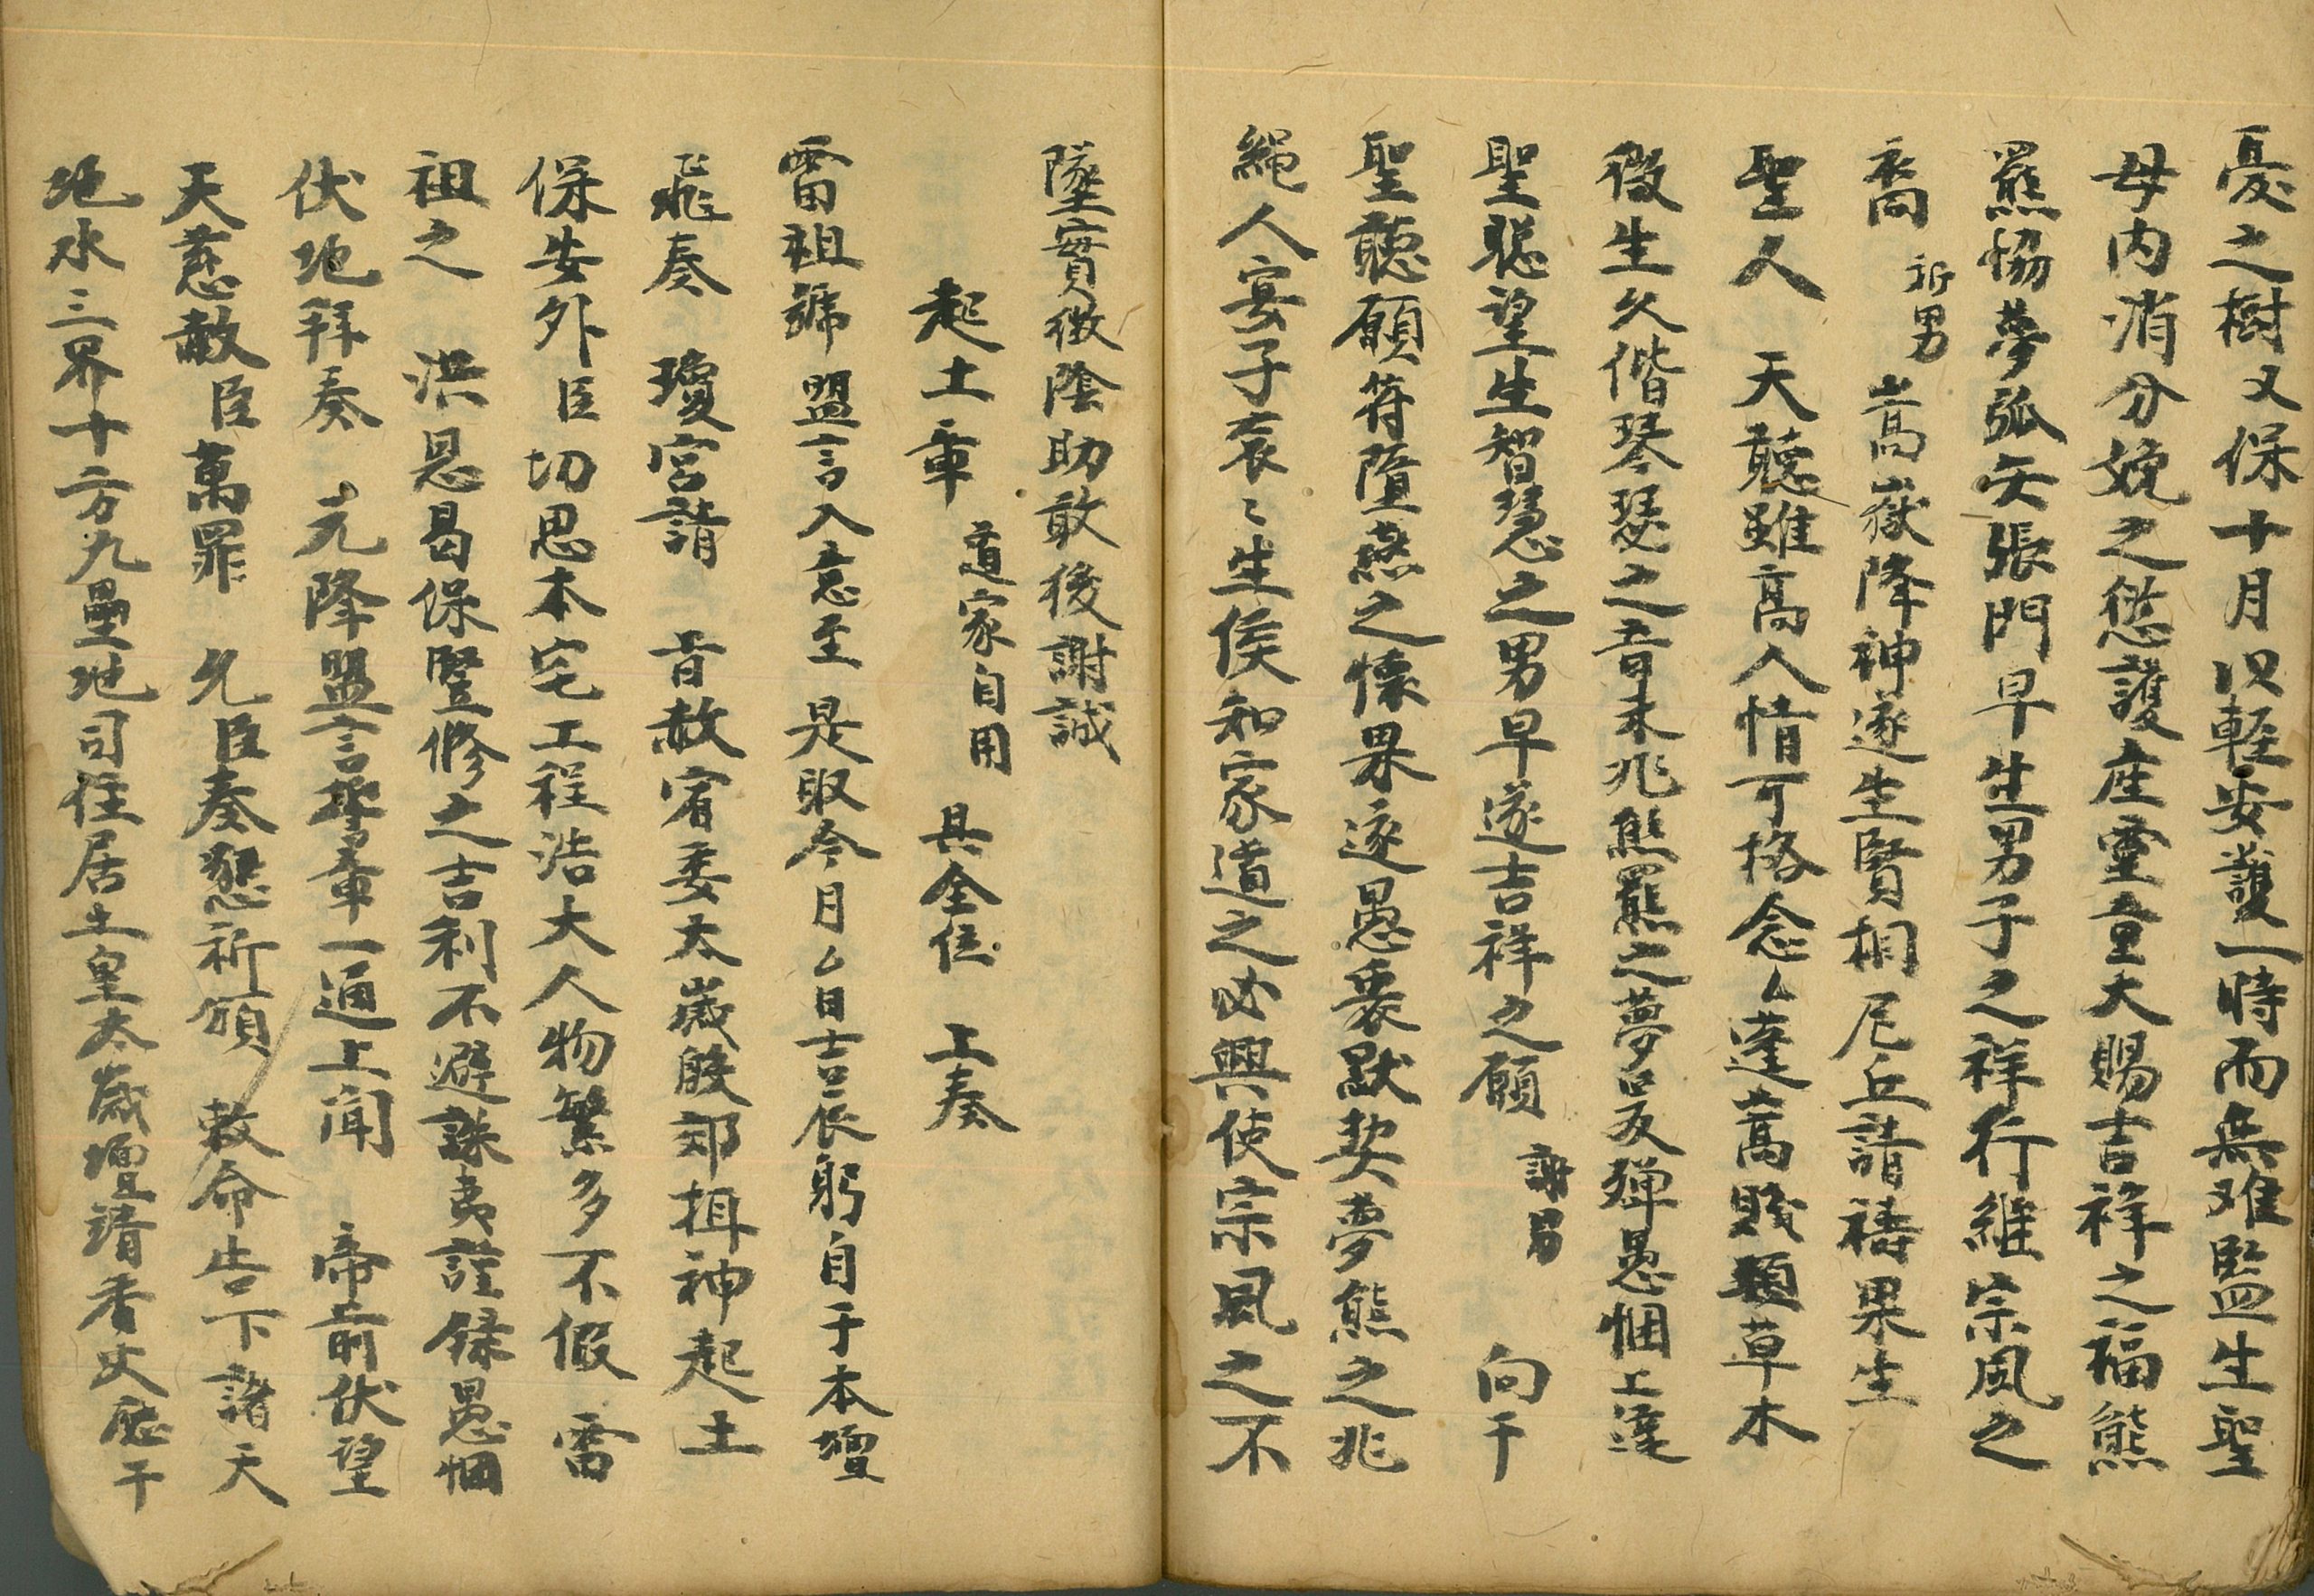 憂之樹又保十月以輕安護一時而無难監生聖
母内消分娩之愆護産靈童大賜吉祥之福熊
羆恊夢弧矢張門早生男子之祥行維宗風之
裔 祈男 嵩嶽降神遂生賢相尼丘請禱果生
聖人 天聽雖高人情可格念厶蓬蒿賤題草木
微生久偕琴瑟之音未兆熊羆之夢是以殫愚悃上達
聖聡望生智慧之男早遂吉祥之願 謝男 向干
聖聽願符墮燕之懷果遂愚衷默契夢熊之兆
繩人宴子哀〻生侯知家道之必興使宗風之不
墜實微陰助敢後謝誠
起土章 道家自用 具全位 上奏
雷祖號 盟言入意至 是取今月厶日吉辰躬自于本壇
飛奏 瓊宮請 旨赦宥委太歲殷郊揖神起土
保安外臣切思本宅工程浩大人物繁多不假 雷
祖之 洪恩曷保竪修之吉利不避誅夷謹錄愚悃
伏地拜奏 元降盟言擧章一通上聞 帝前伏望
天慈赦臣萬罪 允臣奏懇祈頒 敕命告下諸天
地水三界十方九壘地司住居土皇太歲壇靖香火應干